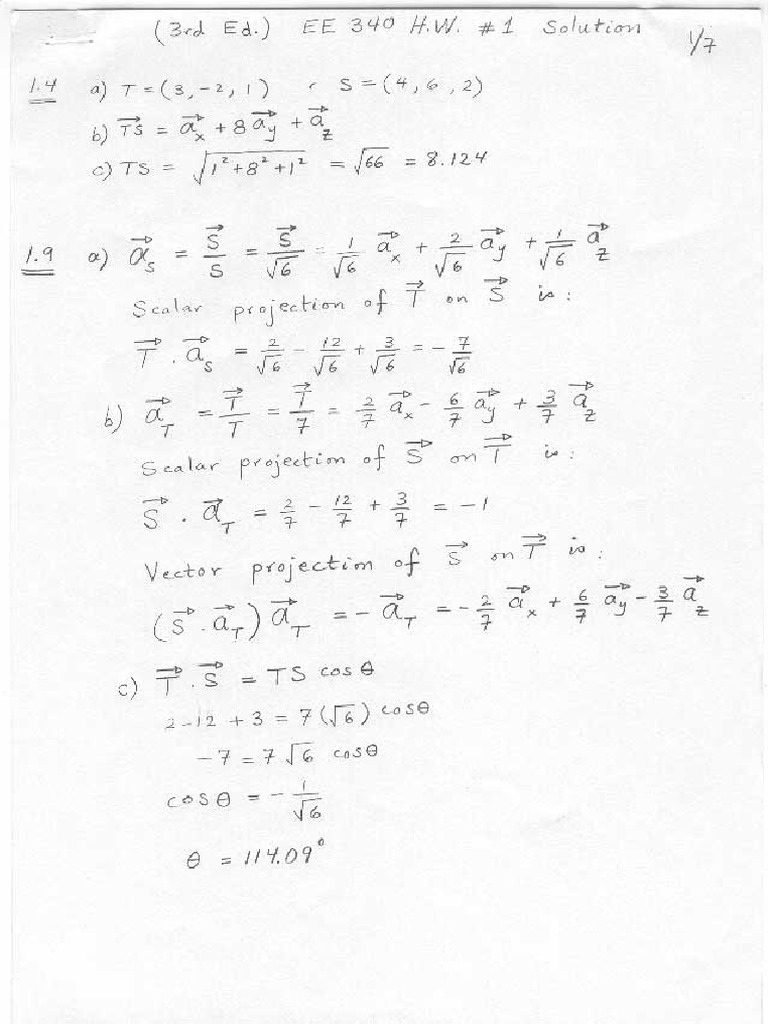 (3rd Ed.) EE 340 H.W. #1 Solution 1/7
1.4 a) T = (3, -2, 1) , S = (4, 6, 2)
b) T⃗S = a⃗x + 8 a⃗y + a⃗z
c) TS = √(1² + 8² + 1²) = √66 = 8.124
1.9 a) a⃗s = S⃗/S = S⃗/√6 = 1/√6 a⃗x + 2/√6 a⃗y + 1/√6 a⃗z
Scalar projection of T⃗ on S⃗ is:
T⃗ . a⃗s = 2/√6 - 12/√6 + 3/√6 = - 7/√6
b) a⃗T = T⃗/T = T⃗/7 = 2/7 a⃗x - 6/7 a⃗y + 3/7 a⃗z
Scalar projection of S⃗ on T⃗ is:
S⃗ . a⃗T = 2/7 - 12/7 + 3/7 = -1
Vector projection of S⃗ on T⃗ is:
(S⃗ . a⃗T) a⃗T = - a⃗T = - 2/7 a⃗x + 6/7 a⃗y - 3/7 a⃗z
c) T⃗ . S⃗ = TS cos θ
2 - 12 + 3 = 7 (√6) cosθ
-7 = 7 √6 cosθ
cosθ = - 1/√6
θ = 114.09°